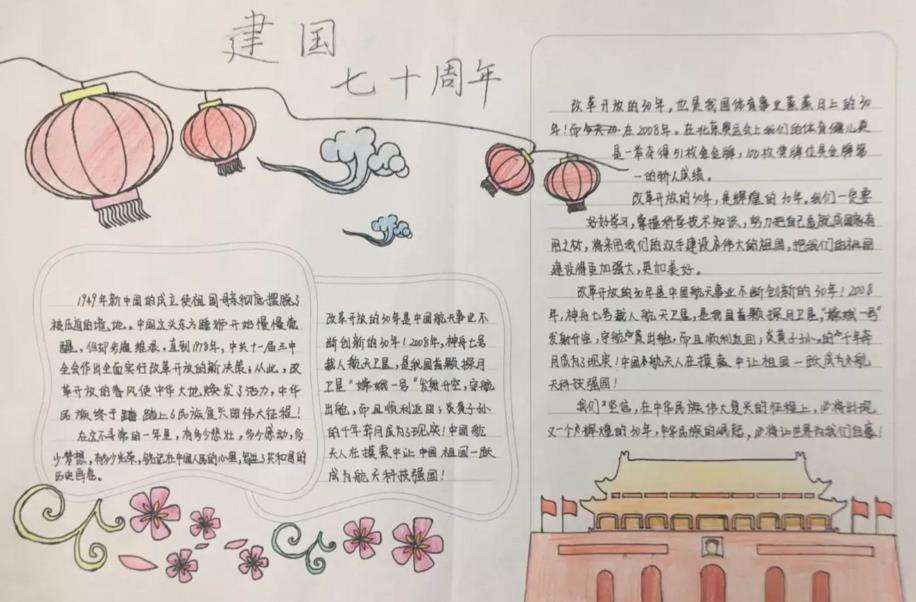 建国
七十周年
1949年新中国的成立使祖国母亲彻底摆脱了
被压迫的境地。中国这头东方睡狮开始慢慢苏
醒。但却步履维艰，直到1978年，中共十一届三中
全会作出全面实行改革开放的新决策；从此，改
革开放的春风使中华大地焕发了活力，中华
民族终于踏上了民族复兴的伟大征程！
在这不寻常的一年里，有多少悲壮，多少感动，多
少梦想，有多少光荣，铭记在中国人民的心里，写进了共和国的
历史画卷。
改革开放的30年是中国航天事业不
断创新的30年！2008年，神舟七号
载人航天卫星，是我国首颗探月
卫星"嫦娥一号"发射升空，穿舱
出舱，而且顺利返回；炎黄子孙
的千年奔月成为了现实！中国航
天人在摸索中让中国祖国一跃
成为航天科技强国！
改革开放的30年，也是我国体育事业蒸蒸日上的30
年！在2008年。在北京奥运会上我们的体育健儿更
是一举夺得51枚金金牌，100枚奖牌位居金牌第
一的骄人成绩。
改革开放的30年，是辉煌的30年。我们一定要
好好学习，掌握科学技术知识，努力把自己造就成国家有
用之材，将来用我们的双手建设伟大的祖国，把我们的祖国
建设得更加强大，更加美好。
改革开放的30年是中国航天事业不断创新的30年！2008
年，神舟七号载人航天卫星，是我国首颗探月卫星，"嫦娥一号"
发射升空，穿舱出舱，而且顺利返回；炎黄子孙的千年奔
月成为了现实！中国航天人在摸索中让祖国一跃成为航
天科技强国！
我们坚信，在中华民族伟大复兴的征程上，必将出现
又一个辉煌的30年，中华民族的崛起，必将让世界为我们自豪！